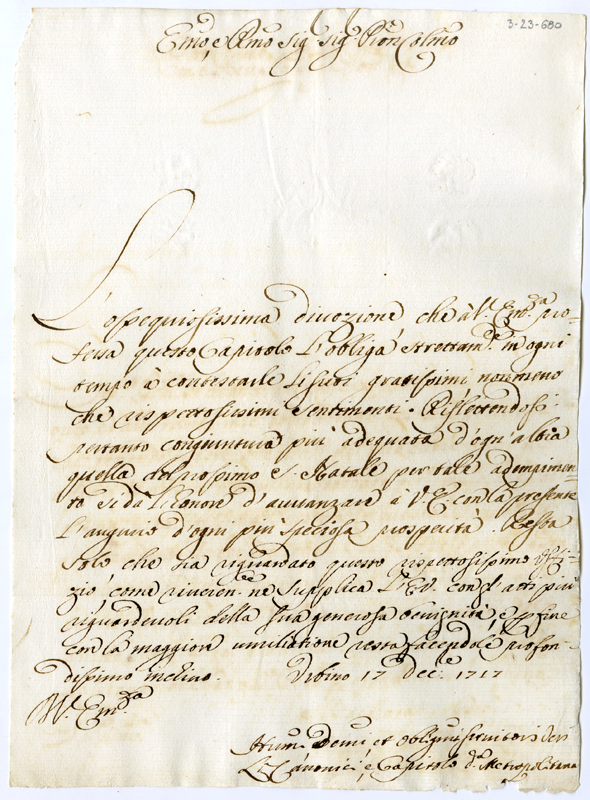 3-23-680
Emo, e Rmo Sig.r Sig.r Pron Colmo
L'ossequiosissima divozione, che à V.ra Em.za pro-
fessa questo Capitolo l'obliga strettam.te in ogni
tempo à contestarle li suoi gratissimi non meno
che rispettosissimi sentimenti. Riflettendosi
pertanto congiuntura più adequata d'ogn'altra
quella del prossimo S. Natale per tale adempimen-
to si dà l'honore d'avvanzare à V. E. con la presente
l'augurio d'ogni più speciosa prosperità. Resta
solo che sia riguardato questo rispettosissimo Offi-
zio, come riveren.te ne supplica l'E.V. con gl'atti più
riguardevoli della sua generosa benignità, e p fine
con la maggiore umiliatione resta facendole profon-
dissimo inchino. Urbino 17 Dec.e 1717
V.ra Em.za
Hum. Devmi et Obligmi servitori veri
Li Canonici, e Capitolo d.a Metropolitana